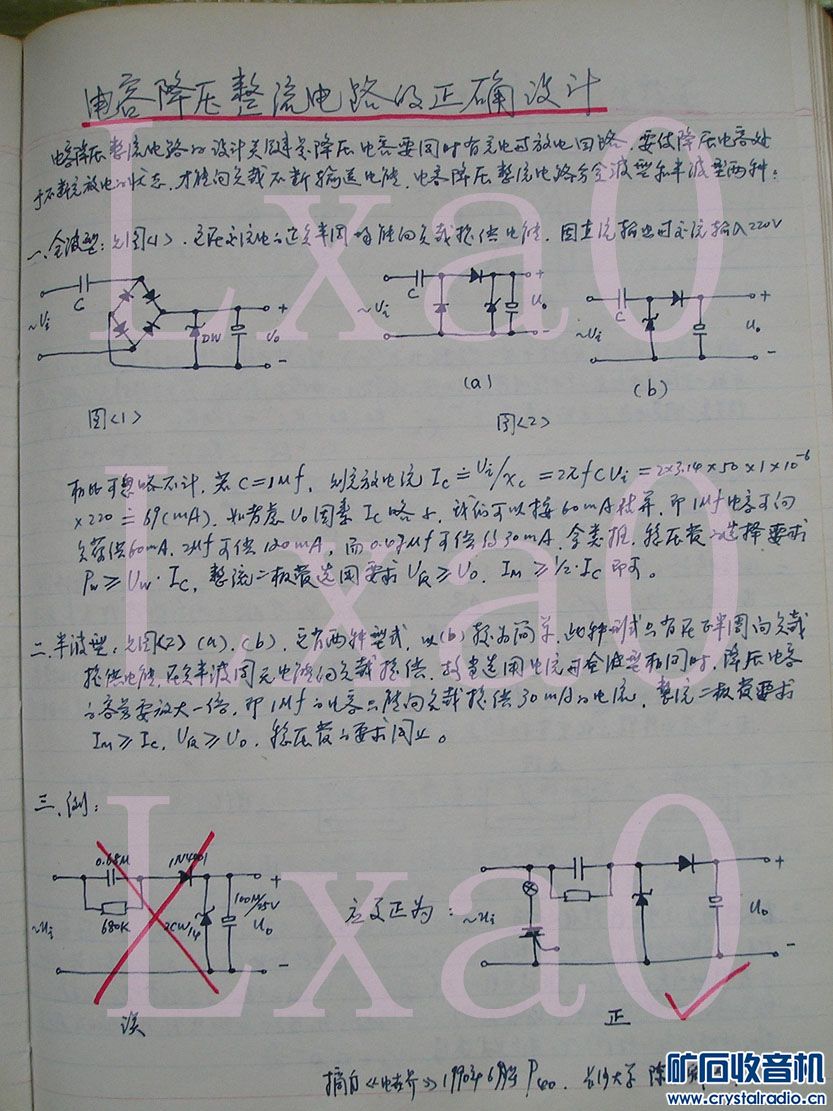 电容降压整流电路的正确设计
电容降压整流电路的设计关键是降压电容要同时有充电和放电回路,要使降压电容处
于不断充放电的状态,才能向负载不断输送电能,电容降压整流电路分全波型和半波型两种:
一、全波型:见图<1>,它在交流电的正负半周均能向负载提供电能,因直流输出时交流输入220V
C
~Ui
DW
Uo
+
-
图<1>
C
~Ui
Uo
+
-
(a)
C
~Ui
Uo
+
-
(b)
图<2>
相比可忽略不计,若C=1μf,则充放电流 Ic≐Ui/Xc=2πfCUi=2×3.14×50×1×10⁻⁶
×220≐69(mA),如考虑Uo因素Ic略小,我们可以按60mA估算,即1μf电容可向
负荷供60mA,2μf可供120mA,而0.47μf可供约30mA,余类推,稳压管的选择要求
Pw≥Uw·Ic,整流二极管选用要求UR≥Uo,Im≥1/2·Ic即可。
二、半波型:见图<2>(a),(b),它有两种型式,以(b)较为简单,此种型式只有在正半周向负载
提供电能,在负半波周无电能向负载提供,故当选用电流与全波型相同时,降压电容
的容量要放大一倍,即1μf的电容只能向负载提供30mA的电流,整流二极管要求
Im≥Ic,UR≥Uo,稳压管的要求同上。
三、例:
0.68μ
1N4001
680K
2CW14
100μ/25V
~Ui
Uo
+
-
误
应更正为:
~Ui
Uo
+
-
正
摘自《电世界》1990年6期 P40. 长沙大学 陈
Lxa0
Lxa0
Lxa0
矿石收音机
www.crystalradio.cn